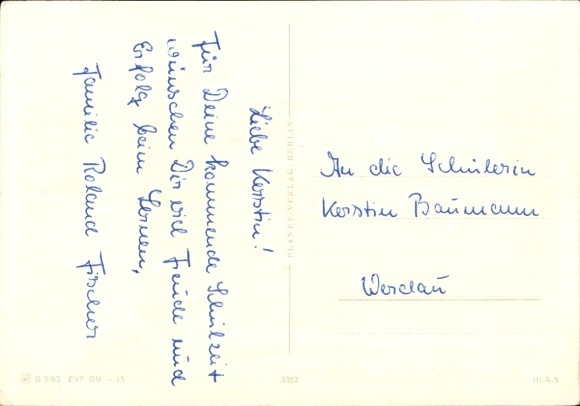 Liebe Kerstin!
Für Deine kommende Schulzeit
wünschen Dir viel Freude und
Erfolg beim Lernen,
Familie Roland Fischer
An die Schülerin
Kerstin Baumann
Werdau
PLANET-VERLAG, BERLIN
B 5/62 EVP DM –.15
3352
III-9-5